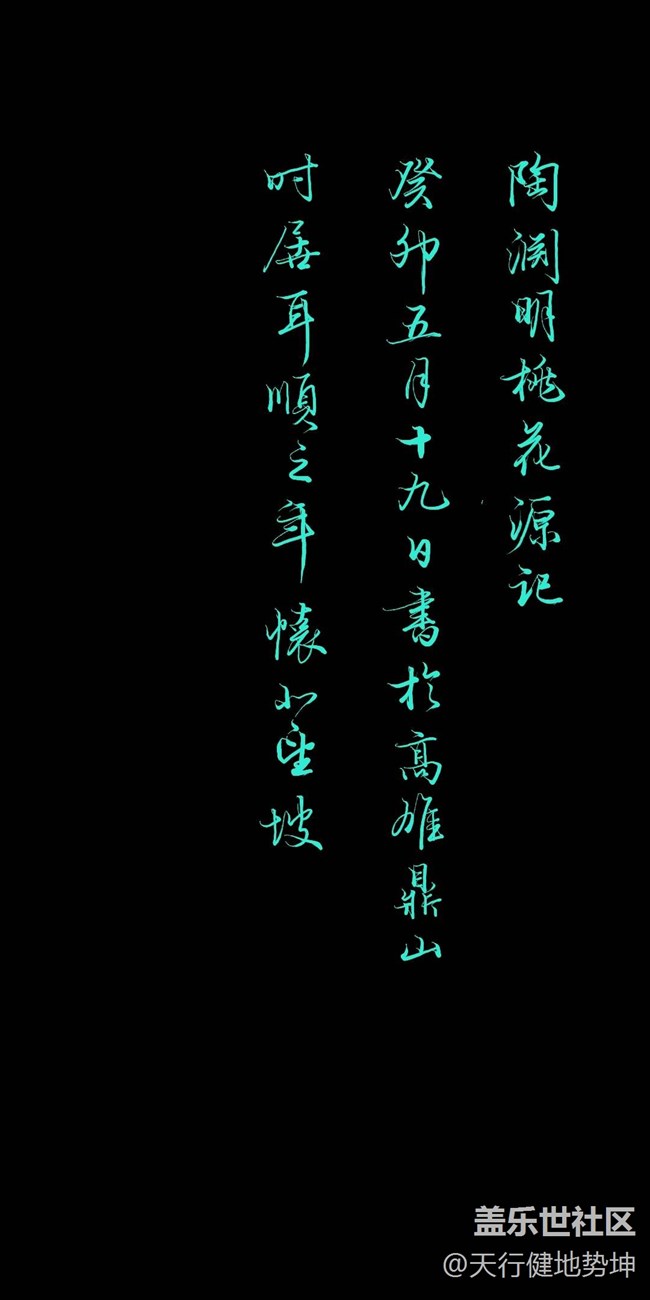 陶渊明桃花源记
癸卯五月十九日書於高雄鼎山
时居耳順之年懐小坐坡
盖乐世社区
@天行健地势坤